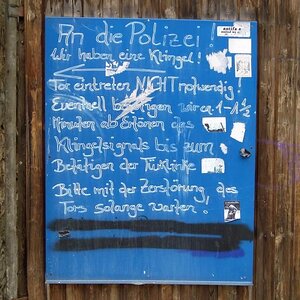 An die Polizei:
Wir haben eine Klingel!
Tor eintreten NICHT notwendig!
Eventuell benötigen wir ca. 1-1½
Minuten ab Ertönen des
Klingelsignals bis zum
Betätigen der Türklinke
Bitte mit der Zerstörung des
Tors solange warten!